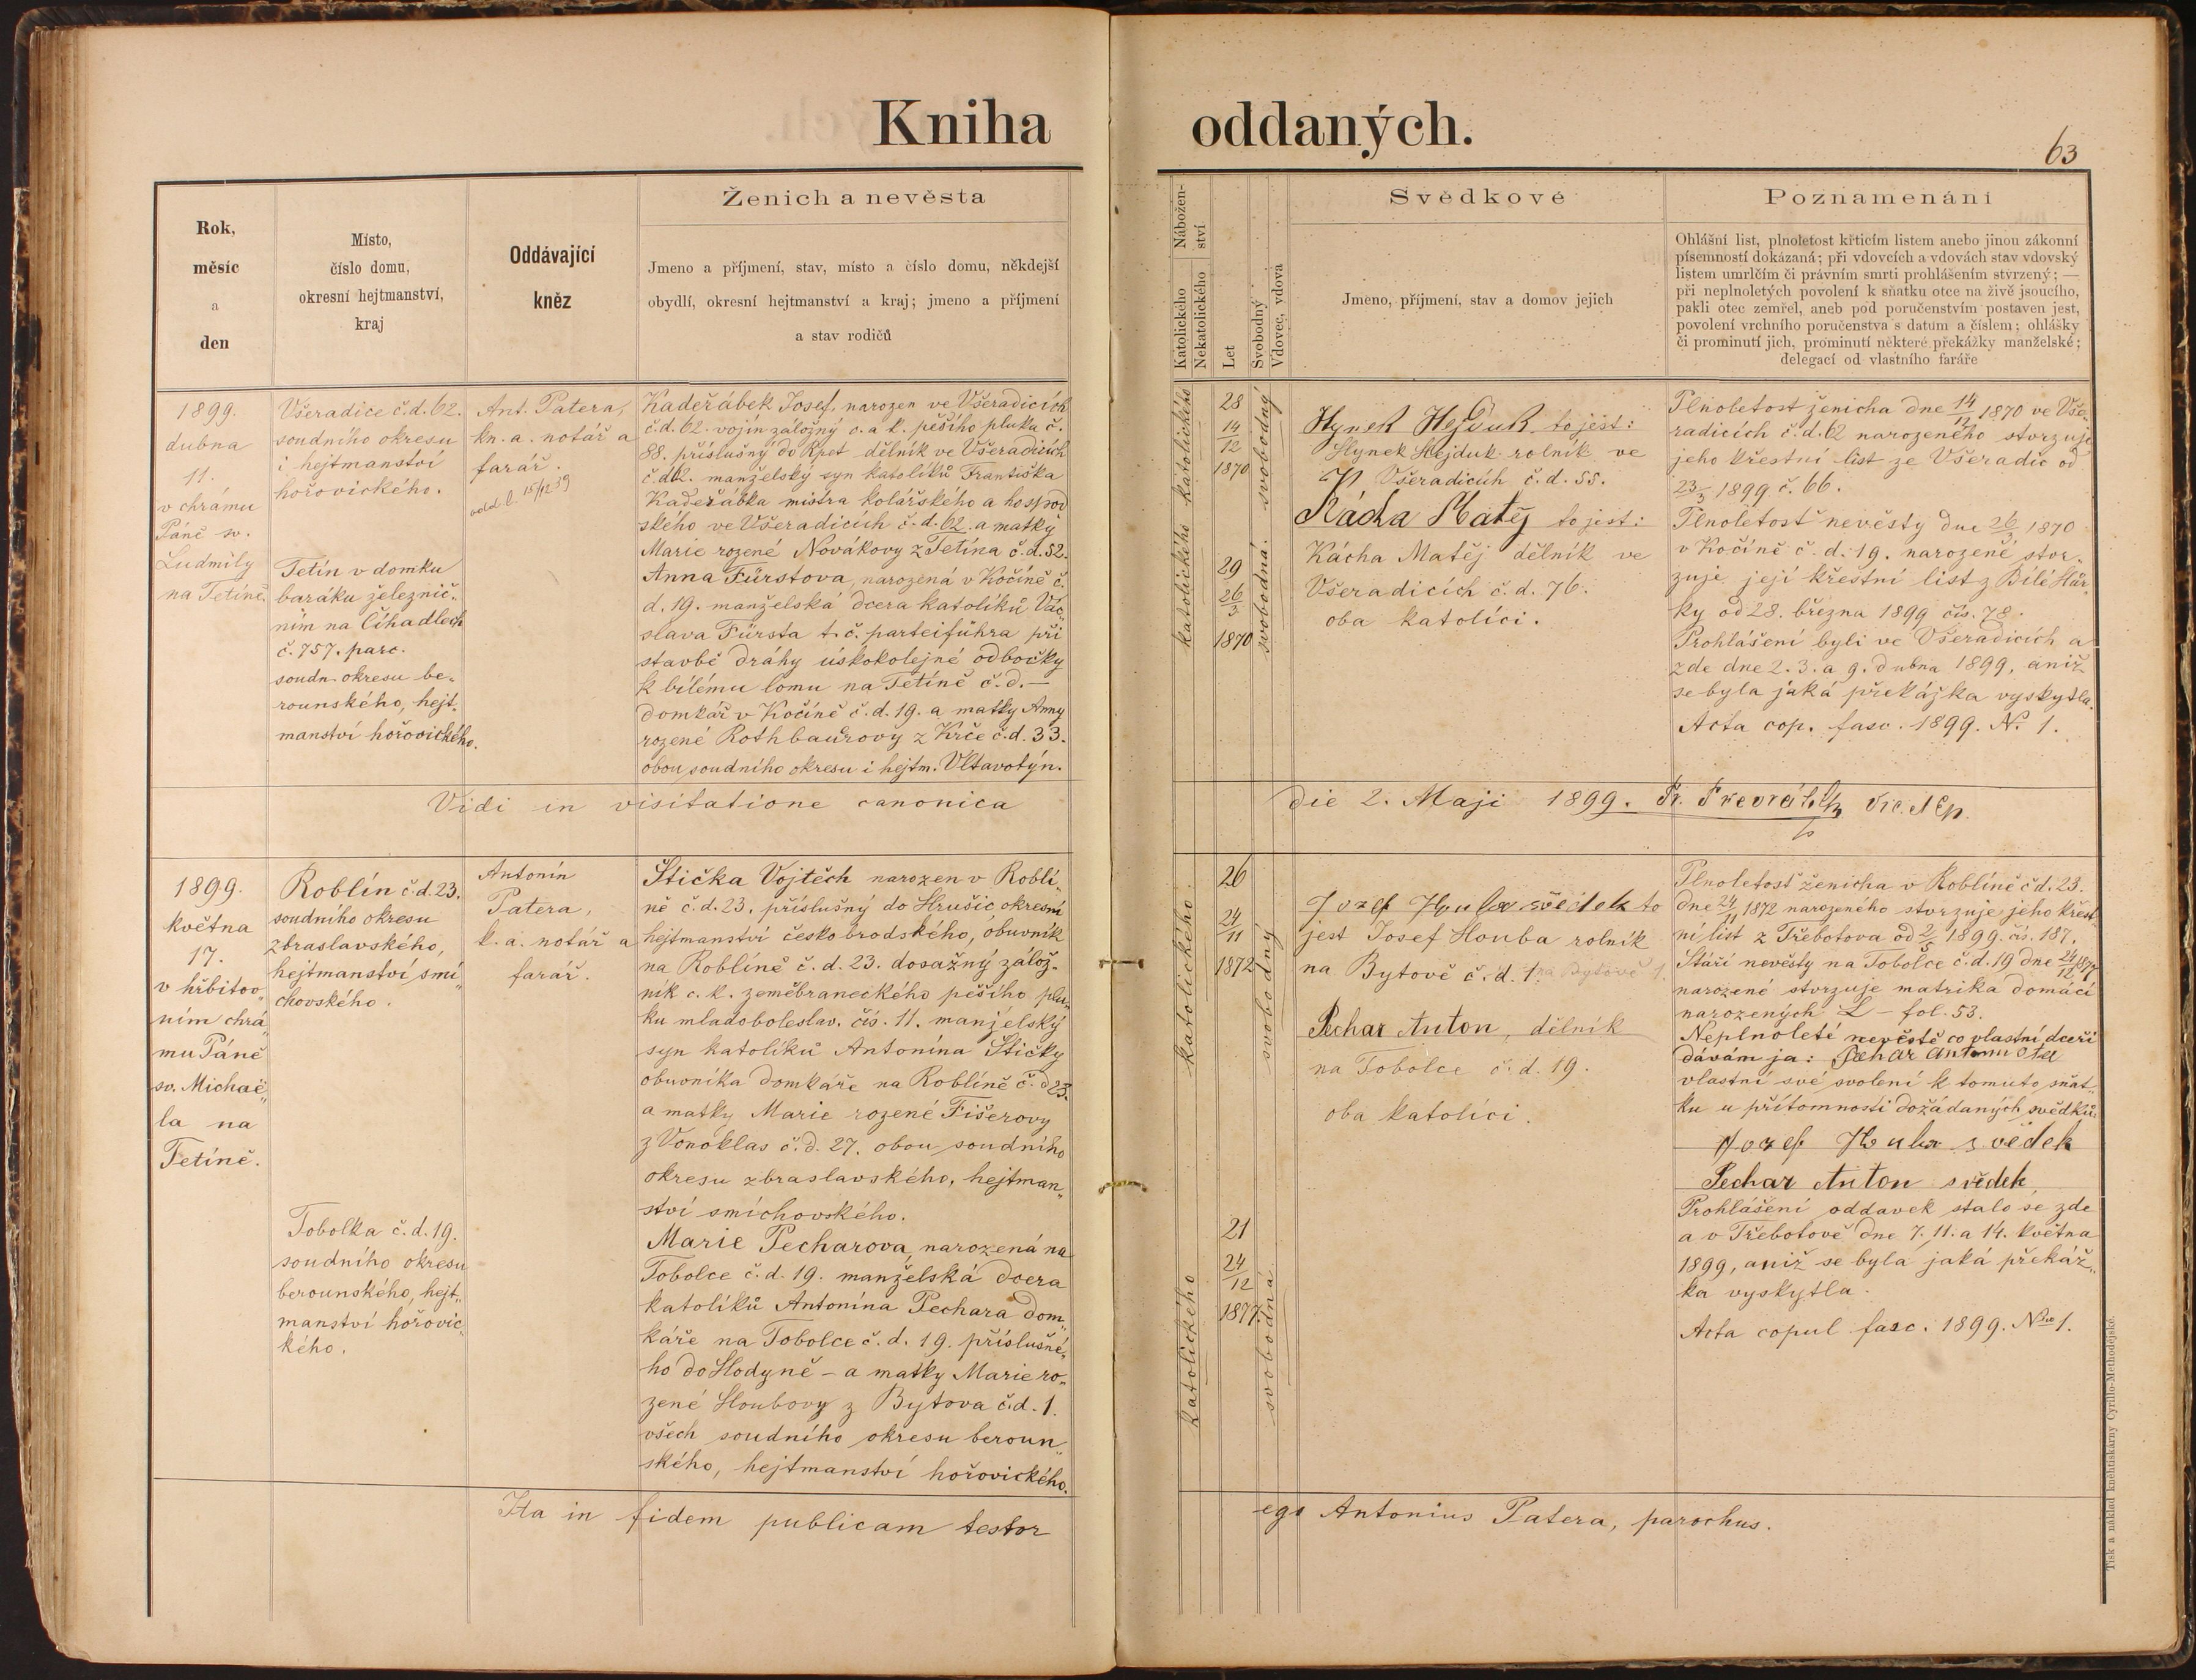 Kniha oddaných.
63
Rok,
měsíc
a
den
Místo,
číslo domu,
okresní hejtmanství,
kraj
Oddávající
kněz
Ženich a nevěsta
Jmeno a příjmení, stav, místo a číslo domu, někdejší
obydlí, okresní hejtmanství a kraj; jmeno a příjmení
a stav rodičů
Nábožen-
ství
Katolického
Nekatolického
Let
Svobodný
Vdovec, vdova
Svědkové
Jmeno, příjmení, stav a domov jejich
Poznamenání
Ohlášní list, plnoletost křticím listem anebo jinou zákonní
písemností dokázaná; při vdovcích a vdovách stav vdovský
listem umrlčím či právním smrti prohlášením stvrzený; —
při neplnoletých povolení k sňatku otce na živě jsoucího,
pakli otec zemřel, aneb pod poručenstvím postaven jest,
povolení vrchního poručenstva s datum a číslem; ohlášky
či prominutí jich, prominutí některé překážky manželské;
delegací od vlastního faráře
1899.
dubna
11.
v chrámu
Páně sv.
Ludmily
na Tetíně.
Všeradice č.d. 62.
soudního okresu
i hejtmanství
hořovického.
Tetín v domku
baráku železnič„
ním na Číhadlech
č. 757. parc.
soudn. okresu be„
rounského, hejt„
manství hořovického.
Ant. Patera,
kn. a. notář a
farář.
Kadeřábek Josef, narozen ve Všeradicích
č.d. 62. vojín záložný c. a k. pěšího pluku č.
88. příslušný do Rpet dělník ve Všeradicích
č.d. 62. manželský syn katolíků Františka
Kadeřábka mistra kolářského a hospod
ského ve Všeradicích č.d. 62. a matky
Marie rozené Novákovy z Tetína č.d. 52.
Anna Fürstova, narozená v Kočíně č.
d. 19. manželská dcera katolíků Vác„
slava Fürsta t. č. parteiführa při
stavbě dráhy úskokolejné odbočky
k bílému lomu na Tetíně č.d. —
domkář v Kočíně č.d. 19. a matky Anny
rozené Rothbaurovy z Krče č.d. 33.
obou soudního okresu i hejtm. Vltavotýn.
katolického
katolického
28
14/12
1870
29
26/3
1870
svobodný
svobodná.
Hynek Hejduk to jest:
Hynek Hejduk rolník ve
Všeradicích č.d. 55.
Kácha Matěj to jest:
Kácha Matěj dělník ve
Všeradicích č.d. 76.
oba katolíci.
Plnoletost ženicha dne 14/12 1870 ve Vše„
radicích č.d. 62 narozeného stvrzuje
jeho křestní list ze Všeradic od
23/3 1899 č. 66.
Plnoletost nevěsty dne 26/3 1870
v Kočíně č.d. 19. narozené stvr„
zuje její křestní list z Bílé Hůr„
ky od 28. března 1899 čís. 78.
Prohlášeni byli ve Všeradicích a
zde dne 2. 3. a 9. dubna 1899, aniž
se byla jaká překážka vyskytla.
Acta cop. fasc. 1899. No. 1.
Vidi in visitatione canonica die 2. Maji 1899.
1899.
května
17.
v hřbitov„
ním chrá„
mu Páně
sv. Michaë„
la na
Tetíně.
Roblín č.d. 23.
soudního okresu
zbraslavského,
hejtmanství smí„
chovského.
Tobolka č.d. 19.
soudního okresu
berounského, hejt„
manství hořovic„
kého.
Antonín
Patera,
k. a. notář a
farář.
Štička Vojtěch narozen v Roblí„
ně č.d. 23. příslušný do Hrušic, okresní
hejtmanství česko brodského, obuvník
na Roblíně č.d. 23. dosažný zálož„
ník c. k. zeměbraneckého pěšího plu„
ku mladoboleslav. čís. 11. manželský
syn katolíků Antonína Štičky
obuvníka domkáře na Roblíně č.d 23.
a matky Marie rozené Fišerovy
z Vonoklas č.d. 27. obou soudního
okresu zbraslavského, hejtman„
ství smíchovského.
Marie Pecharova, narozená na
Tobolce č.d. 19. manželská dcera
katolíků Antonína Pechara dom„
káře na Tobolce č.d. 19. příslušné„
ho do Hodyně – a matky Marie ro„
zené Houbovy z Bytova č.d. 1.
všech soudního okresu beroun„
ského, hejtmanství hořovického.
katolického.
katolického
26
24/11
1872
21
24/12
1877.
svobodný
svobodná
Jozef Houba svědek to
jest Josef Houba rolník
na Bytově č.d. 1.
Pechar Anton, dělník
na Tobolce č.d. 19.
oba katolíci.
Plnoletost ženicha v Roblíně č.d. 23.
dne 24/11 1872 narozeného stvrzuje jeho křest„
ní list z Třebotova od 2/5 1899. čís. 187.
Stáří nevěsty na Tobolce č.d. 19 dne 24/12 1877
narozené stvrzuje matrika domácí
narozených L – fol. 53.
Neplnoleté nevěstě co vlastní dceři
dávám já: Pechar Antonn otec
vlastní své svolení k tomuto sňat„
ku u přítomnosti dožádaných svědků:
Jozef Houba svědek
Pechar Anton svědek
Prohlášení oddavek stalo se zde
a v Třebotově dne 7. 11. a 14. května
1899, aniž se byla jaká překáž„
ka vyskytla.
Acta copul fasc. 1899. Nro 1.
Ita in fidem publicam testor ego Antonius Patera, parochus.
Tisk a náklad kněhtiskárny Cyrillo-Methodějské.